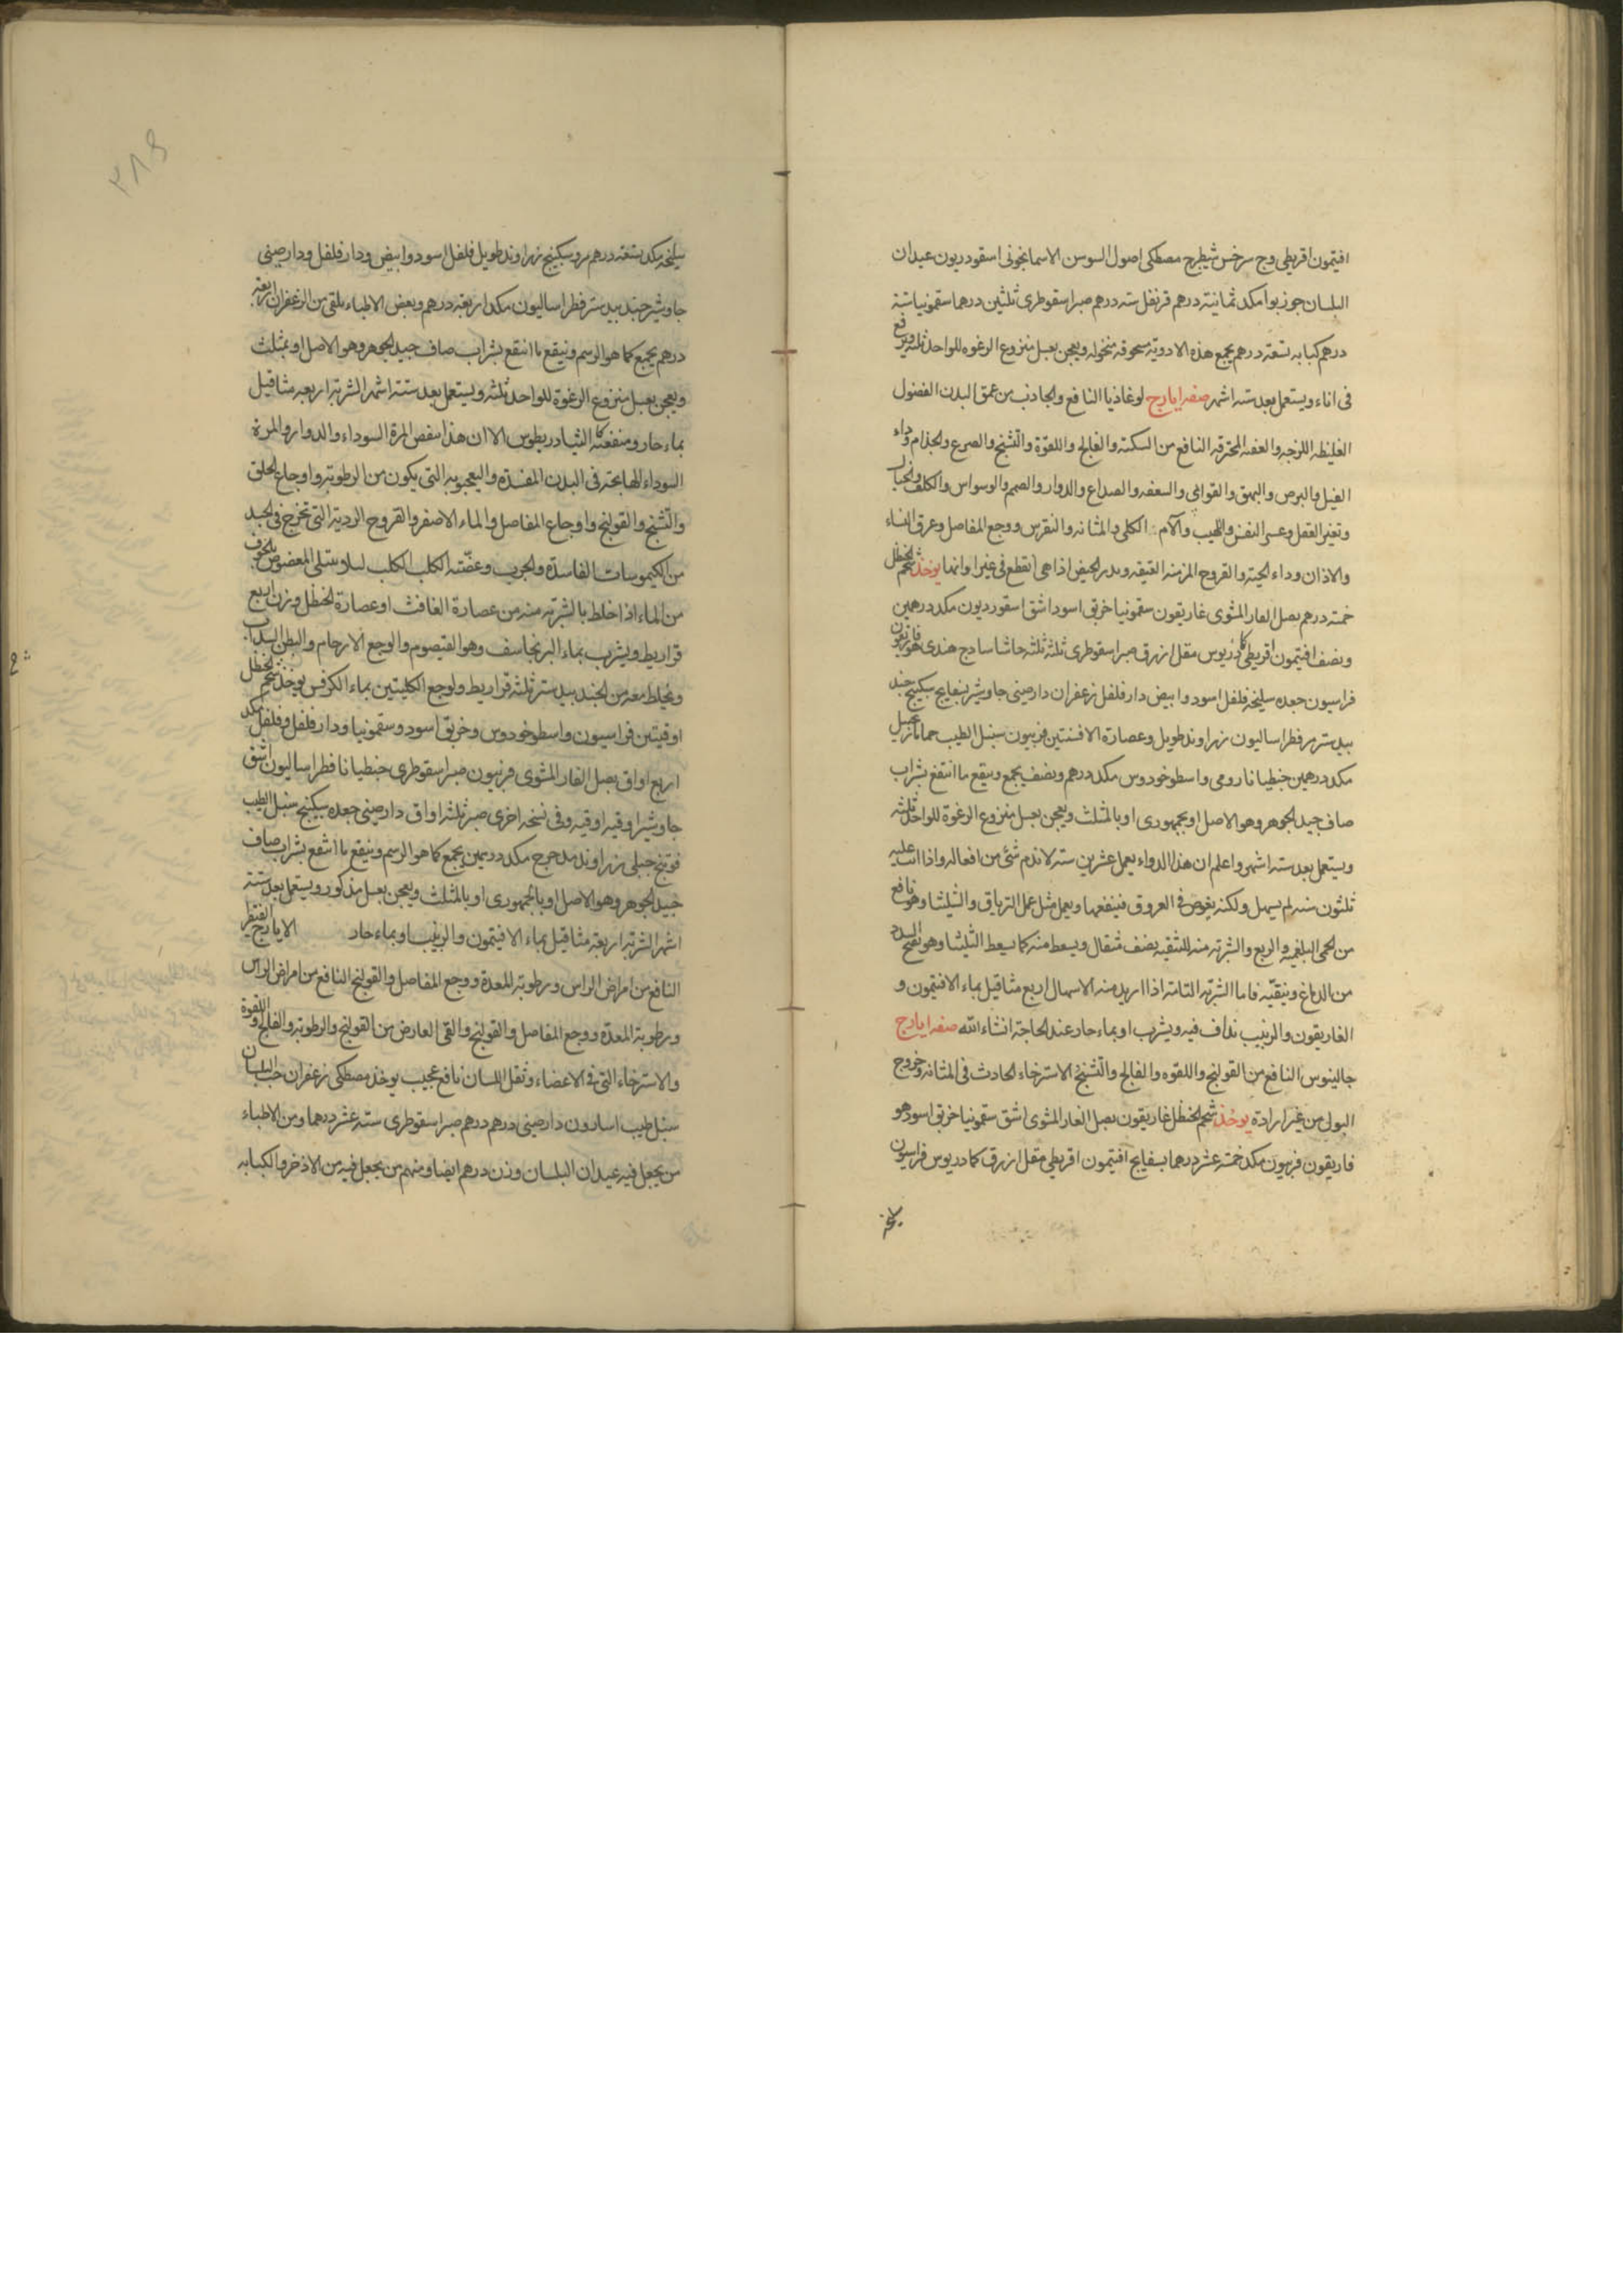 افتيمون اقريطى وج سرخس شيطرج مصطكى اصول السوسن الاسمانجونى اسقورديون عيدان
البلسان جوز بوا مكد ثمانية درهم قرنفل سته درهم صبر اسقوطرى ثلثين درهما سقمونيا ستة
درهم كبابه تسعة درهم يجمع هذه الادوية مسحوقه منخوله ويعجن بعسل منزوع الرغوه للواحد ثلثه ويرفع
فى اناء ويستعمل بعد سته اشهر صفه ايارج لوغاذيا النافع والجاذب من عمق البدن الفضول
الغليظه اللزجه والعفنه المحترقه النافع من السكتة والفالج واللقوة والتشنج والصرع والجذام وداء
الفيل والبرص والبهق والقوابى والسعفه والصداع والدوار والصمم والوسواس والكلف
وتغير العقل وعسر النفس واللهيب وآلام الكلى والمثانه والنقرس ووجع المفاصل وعرق النساء
والاذان وداء الحية والقروح المزمنه العتيقه ويدر الحيض اذا هى انقطع فى غير اوانها يوخذ شحم الحنظل
خمسة درهم بصل الفار المشوى غاريقون سقمونيا خربق اسود اشق اسقورديون مكد درهمين
ونصف افتيمون اقريطى كمادريوس مقل ازرق صبر اسقوطرى ثلثة ثلثه حاشا سادج هندى هوفاريقون
فراسيون جعده سليخه فلفل اسود وابيض دارفلفل زعفران دارصينى جاوشير بسفايج سكبينج جند
بيدستر مر فطراساليون زراوند طويل وعصارة الافسنتين فربيون سنبل الطيب حماما زنجبيل
مكد درهمين جنطيانا رومى واسطوخودوس مكد درهم ونصف يجمع وينقع ما انتقع بشراب
صاف جيد الجوهر وهو الاصل او بجمهورى او بالمثلث ويعجن بعسل منزوع الرغوة للواحد ثلثه
ويستعمل بعد سته اشهر واعلم ان هذا الدواء يعمل عشرين سنه لاندم شئ من افعاله واذا اتت عليه
ثلثون سنه لم يسهل ولكنه يغوص فى العروق فينفعها ويعمل مثل عمل الترياق والشليثا وهو نافع
من الحمى البلغمية والربع والشربة منه للتنقيه نصف مثقال ويسعط منه كما يسعط الشليثا وهو يفتح السدد
من الدماغ وينقيه فاما الشربة التامة اذا اريد منه الاسهال اربع مثاقيل بماء الافتيمون و
الغاريقون والزبيب نداف فيه ويشرب او بماء حار عند الحاجة انشاء الله صفه ايارج
جالينوس النافع من القولنج واللقوه والفالج والتشنج الاسترخاء الحادث فى المثانه وخروج
البول من غير ارادة يوخذ شحم الحنظل غاريقون بصل الفار المشوى اشق سقمونيا خربق اسود هو
فاريقون فربيون مكد خمسة عشر درهما بسفايج افتيمون اقريطى مقل ازرق كمادريوس فراسيون
سليخه
٢٨٩
سليخه مكد تسعة درهم مر وسكبينج زراوند طويل فلفل اسود وابيض ودارفلفل ودارصينى
جاوشير جندبيدستر فطراساليون مكد اربعة درهم وبعض الاطباء يلقى من الزعفران اربعة
درهم يجمع كما هو الرسم وينقع ما انتقع بشراب صاف جيد الجوهر وهو الاصل او بمثلث
ويعجن بعسل منزوع الرغوة للواحد ثلثه ويستعمل بعد ستة اشهر الشربة اربعه مثاقيل
بماء حار ومنفعته كا الثيادريطوس الا ان هذا ينفض المرة السوداء والدوار والمرة
السوداء الهابجة فى البدن المفسدة واليعجوبة التى يكون من الرطوبة واوجاع الحلق
والتشنج والقولنج واوجاع المفاصل والماء الاصفر والقروح الردية التى تخرج فى الجسد
من الكيموسات الفاسدة والجرب وعضة الكلب الكلب ليلا يبتلى المعضوض بالخوف
من الماء اذا خلط بالشربة منه من عصارة الغافث او عصارة الحنظل وزن اربع
قراريط ويشرب بماء البرنجاسف وهو القيصوم والوجع الارحام والبطن السداب
ويخلط معه من الجندبيدستر ثلثة قراريط ولوجع الكليتين بماء الكرفس يوخذ شحم الحنظل
اوقيتين فراسيون واسطوخودوس وخربق اسود وسقمونيا ودارفلفل وفلفل مكد
اربع اواق بصل الفار المشوى فربيون صبر اسقوطرى جنطيانا فطراساليون اشق
جاوشير اوقيه اوقيه وفى نسخه اخرى صبر ثلثه اواق دارصينى جعده سكبينج سنبل الطيب
فوتنج جبلى زراوند مدحرج مكد درهمين يجمع كما هو الرسم وينقع ما انتقع بشراب صاف
جيد الجوهر وهو الاصل او بالجمهورى او بالمثلث ويعجن بعسل مذكور ويستعمل بعد ستة
اشهر الشربة اربعة مثاقيل بماء الافتيمون والزبيب او بماء حار الايارج الفيقرا
النافع من امراض الراس ورطوبة المعدة ووجع المفاصل والقولنج النافع من امراض الراس
ورطوبة المعدة ووجع المفاصل والقولنج والقى العارض من القولنج والرطوبة والفالج واللقوة
والاسترخاء التى فى الاعضاء وثقل اللسان نافع عجيب يوخذ مصطكى زعفران حب البلسان
سنبل طيب اسارون دارصينى درهم درهم صبر اسقوطرى ستة عشر درهما ومن الاطباء
من يجعل فيه عيدان البلسان وزن درهم ايضا ومنهم من يجعل فيه من الاذخر والكبابه